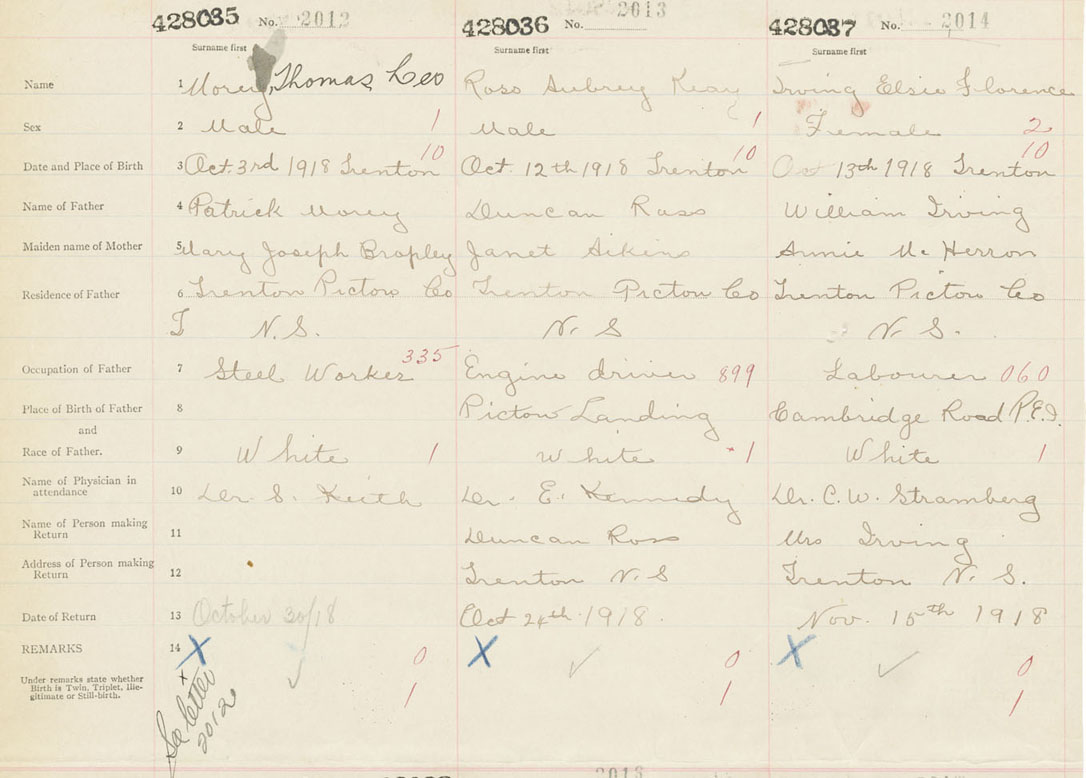 428035 No. 2012 428036 No. 2013 428037 No. 2014
Surname first Surname first Surname first
Name 1 Morey, Thomas Leo Ross Aubrey Keay Irving Elsie Florence
Sex 2 Male 1 Male 1 Female 2
10 10 10
Date and Place of Birth 3 Oct. 3rd 1918 Trenton Oct. 12th 1918 Trenton Oct 13th 1918 Trenton
Name of Father 4 Patrick Morey Duncan Ross William Irving
Maiden name of Mother 5 Mary Joseph Janet Aikins Annie Mc Herron
Residence of Father 6 Trenton Pictou Co Trenton Pictou Co Trenton Pictou Co
N.S. N.S N.S.
Occupation of Father 7 Steel Worker 335 Engine driver 899 Labourer 060
Place of Birth of Father 8 Pictou Landing Cambridge Road P.E.I.
and
Race of Father. 9 White 1 White 1 White 1
Name of Physician in
attendance 10 Dr. S. Keith Dr. E. Kennedy Dr. C. W. Stramberg
Name of Person making
Return 11 Duncan Ross Mrs Irving
Address of Person making
Return 12 Trenton N.S Trenton N.S.
Date of Return 13 October 30/18 Oct 24th 1918. Nov. 15th 1918
REMARKS 14 X X X
0 0 0
Under remarks state whether
Birth is Twin, Triplet, Ille-
gitimate or Still-birth.
1 1 1
x
See letter
2012
2013